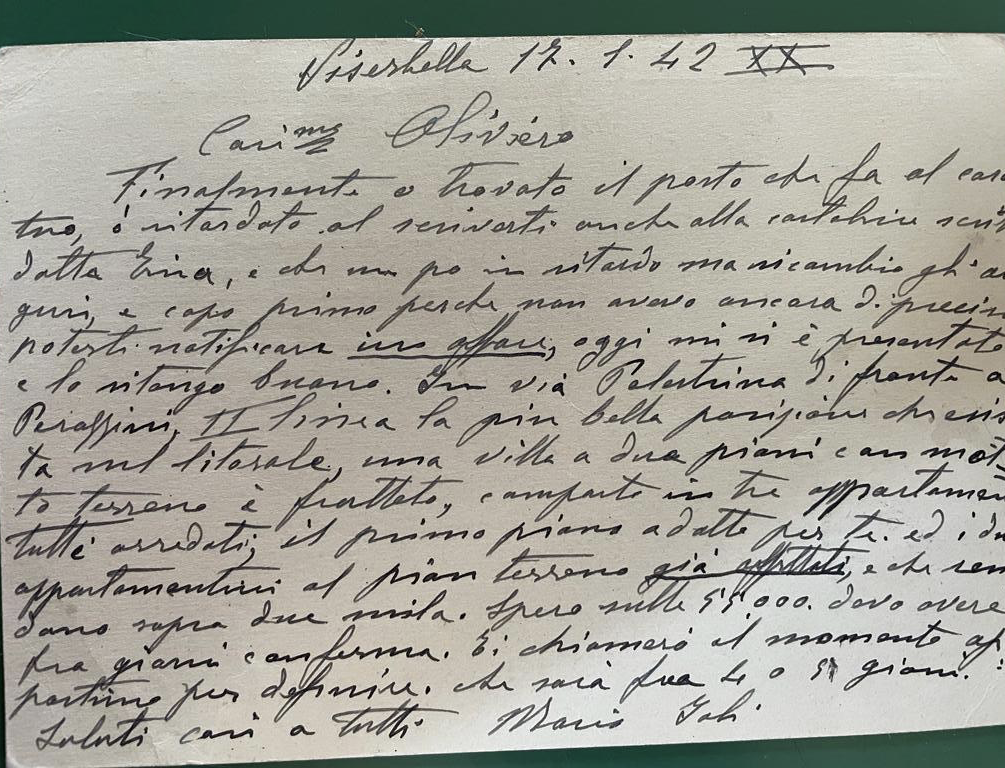 Viserbella 17. 1. 42 XX
Cari mo Oliviero
Finalmente o trovato il posto che fa al caso
tuo, ò ritardato al scriverti anche alla cartolina
dalla Erica, e che un po in ritardo ma ricambio gl'au
guri, e capo primo perche non avevo ancora di preciso
poterti notificare un affare, oggi mi si è presentato
e lo ritengo buono. In via Palestrina di fronte a
II linea la piu bella posizione che esis
ta nel litorale, una villa a due piani con mol
to terreno è frutteto, composta in tre appartamen
tutti arredati; il primo piano adatto per te. ed i du
appartamentini al pian terreno già affittati, e che ren
dano sopra due mila. Spero sulle 55000. devo avere
fra giorni conferma. Ti chiamerò al momento op
portuno per definire. che sarà fra 4 o 5 giorni.
Saluti cari a tutti Mario